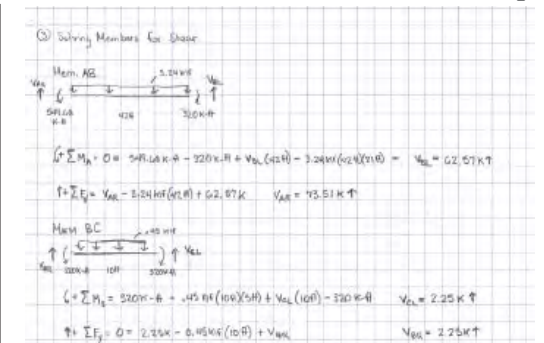 ③ Solving Members for Shear
Mem. AB
3.24 klf
V_AR V_BL
K-ft 42ft 320K-ft
↺+ΣM_A = 0 = K-ft - 320 K-ft + V_BL(42ft) - 3.24 klf(42ft)(21ft) = V_BL = 62.57K↑
↑+ΣF_y = V_AR - 3.24 klf(42ft) + 62.57K V_AR = 73.51 K↑
Mem BC
.45 klf
V_BR 320K-ft 10ft 320K-ft V_CL
↺+ΣM_B = 320K-ft - .45 klf(10ft)(5ft) + V_CL(10ft) - 320 K-ft V_CL = 2.25 K ↑
↑+ ΣF_y = 0 = 2.25K - 0.45klf(10ft) + V_BR V_BR = 2.25K↑